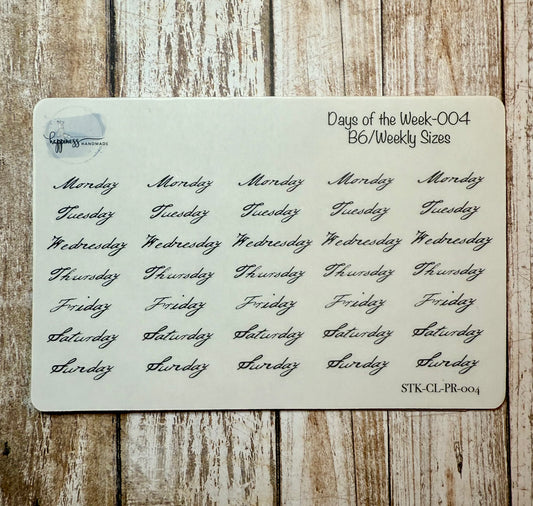 happiness
HANDMADE
Days of the Week-004
B6/Weekly Sizes
Monday Monday Monday Monday Monday
Tuesday Tuesday Tuesday Tuesday Tuesday
Wednesday Wednesday Wednesday Wednesday Wednesday
Thursday Thursday Thursday Thursday Thursday
Friday Friday Friday Friday Friday
Saturday Saturday Saturday Saturday Saturday
Sunday Sunday Sunday Sunday Sunday
STK-CL-PR-004